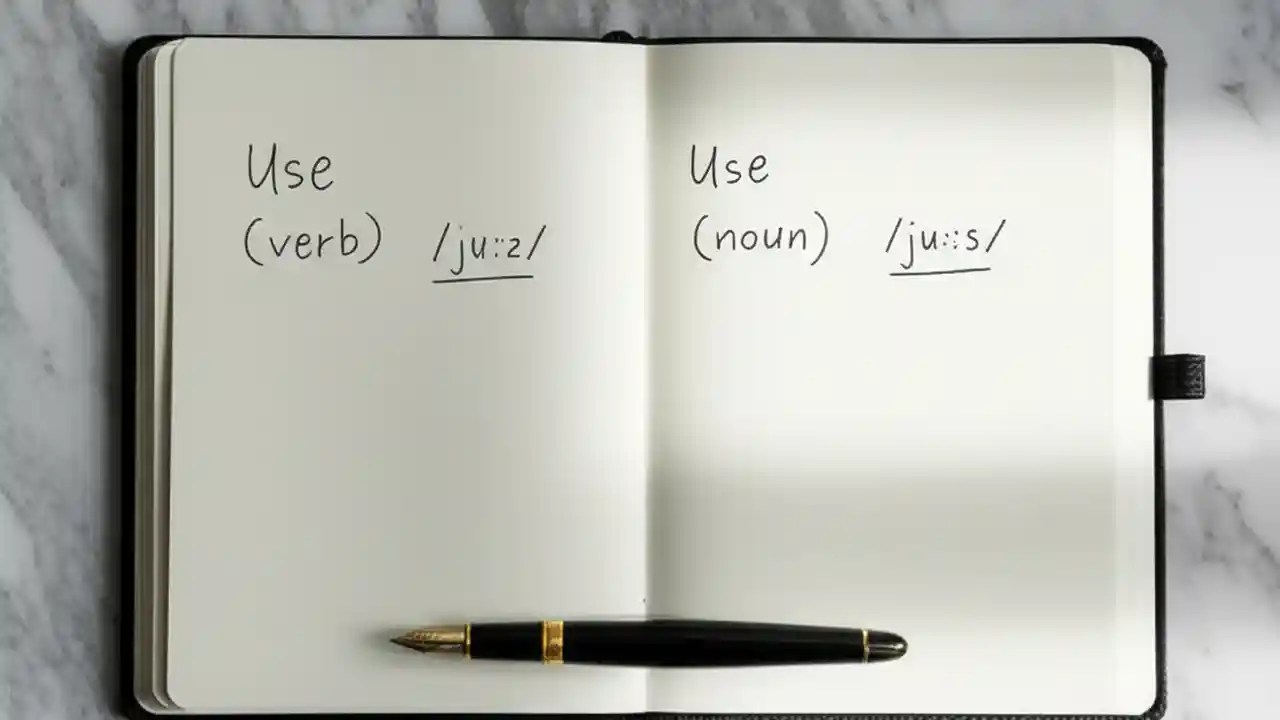 Use
(verb) /ju::z/
Use
(noun) /ju::s/